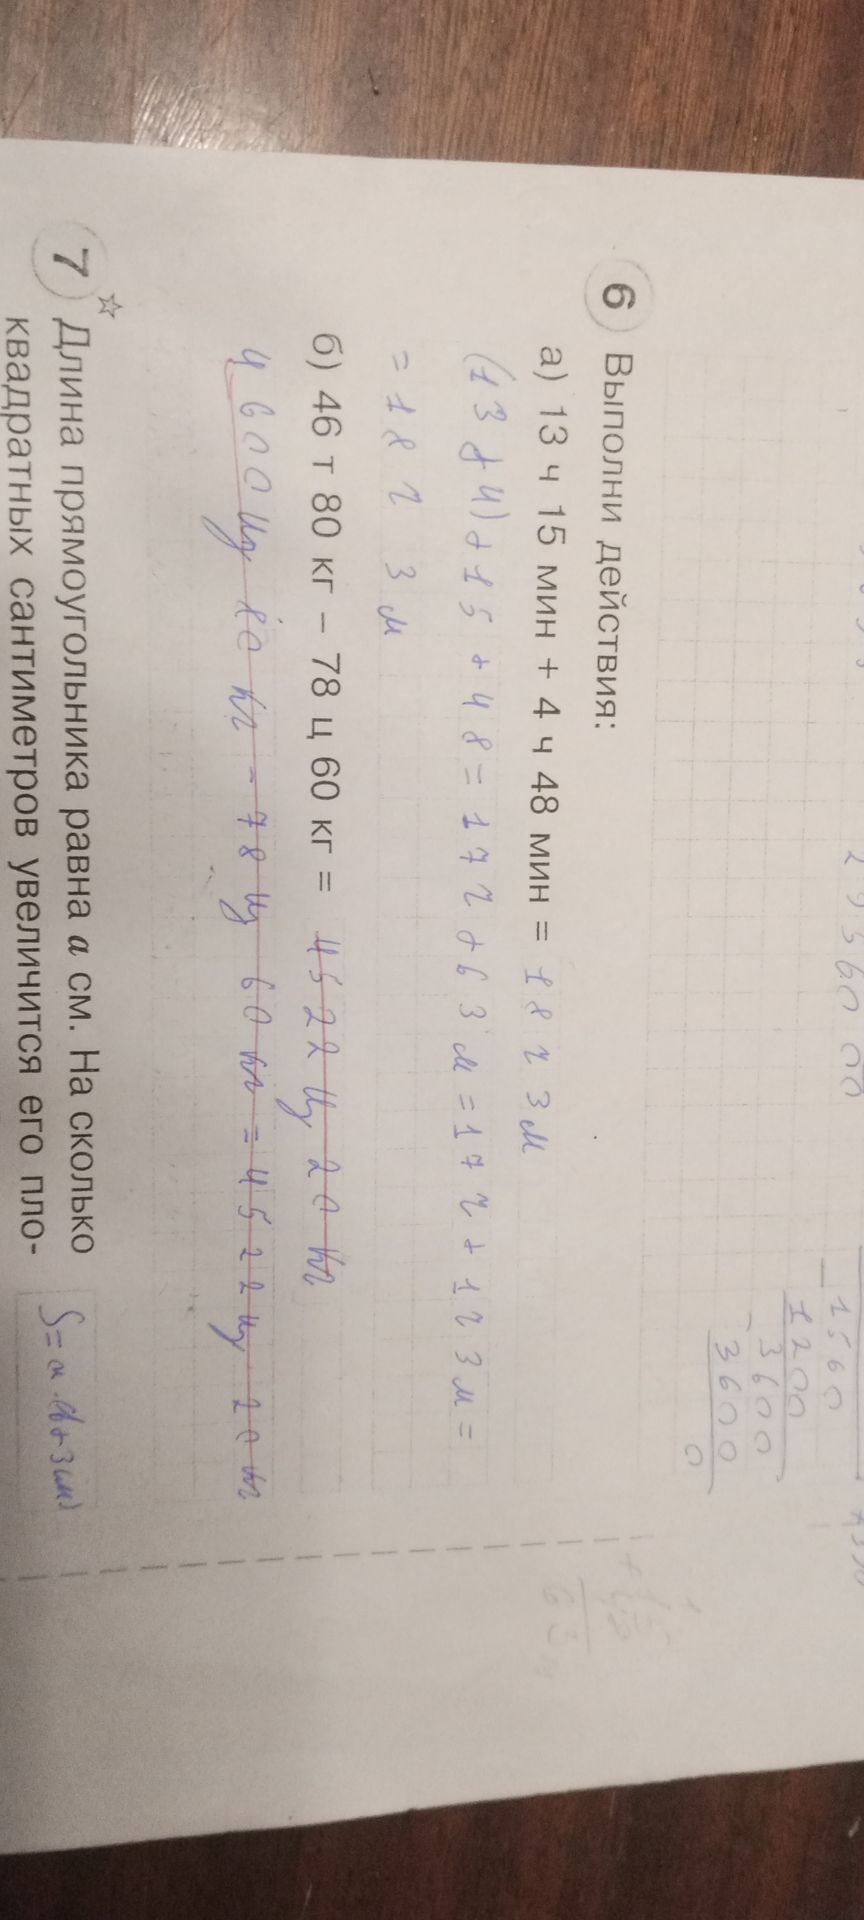 29360 00
1560
1200
3600
3600
0
6 Выполни действия:
а) 13 ч 15 мин + 4 ч 48 мин = 18 ч 3 м
(13 + 4) + 15 + 48 = 17 ч + 63 м = 17 ч + 1 ч 3 м =
= 18 ч 3 м
б) 46 т 80 кг – 78 ц 60 кг = 4522 ц 20 кг
4600 ц 80 кг – 78 ц 60 кг = 4522 ц 20 кг
63
7 Длина прямоугольника равна a см. На сколько
квадратных сантиметров увеличится его пло-